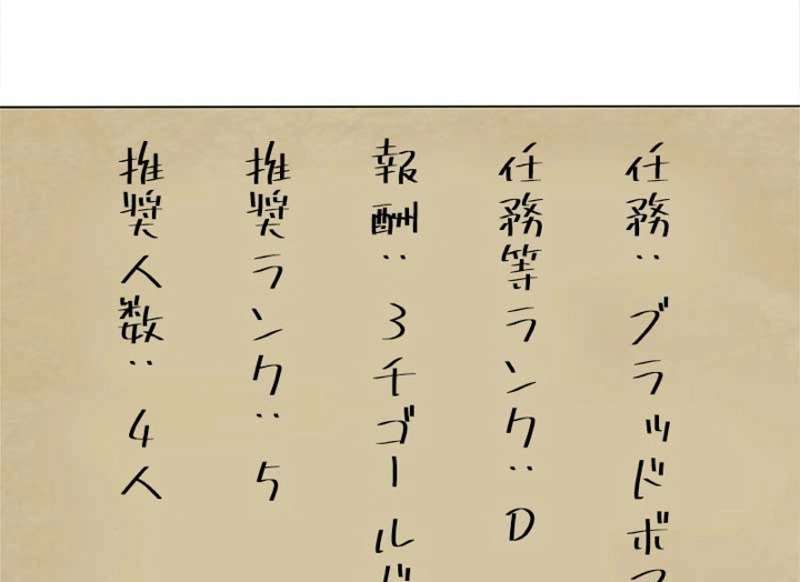 任務：ブラッドボ
任務等ランク：D
報酬：3千ゴールド
推奨ランク：5
推奨人数：4人